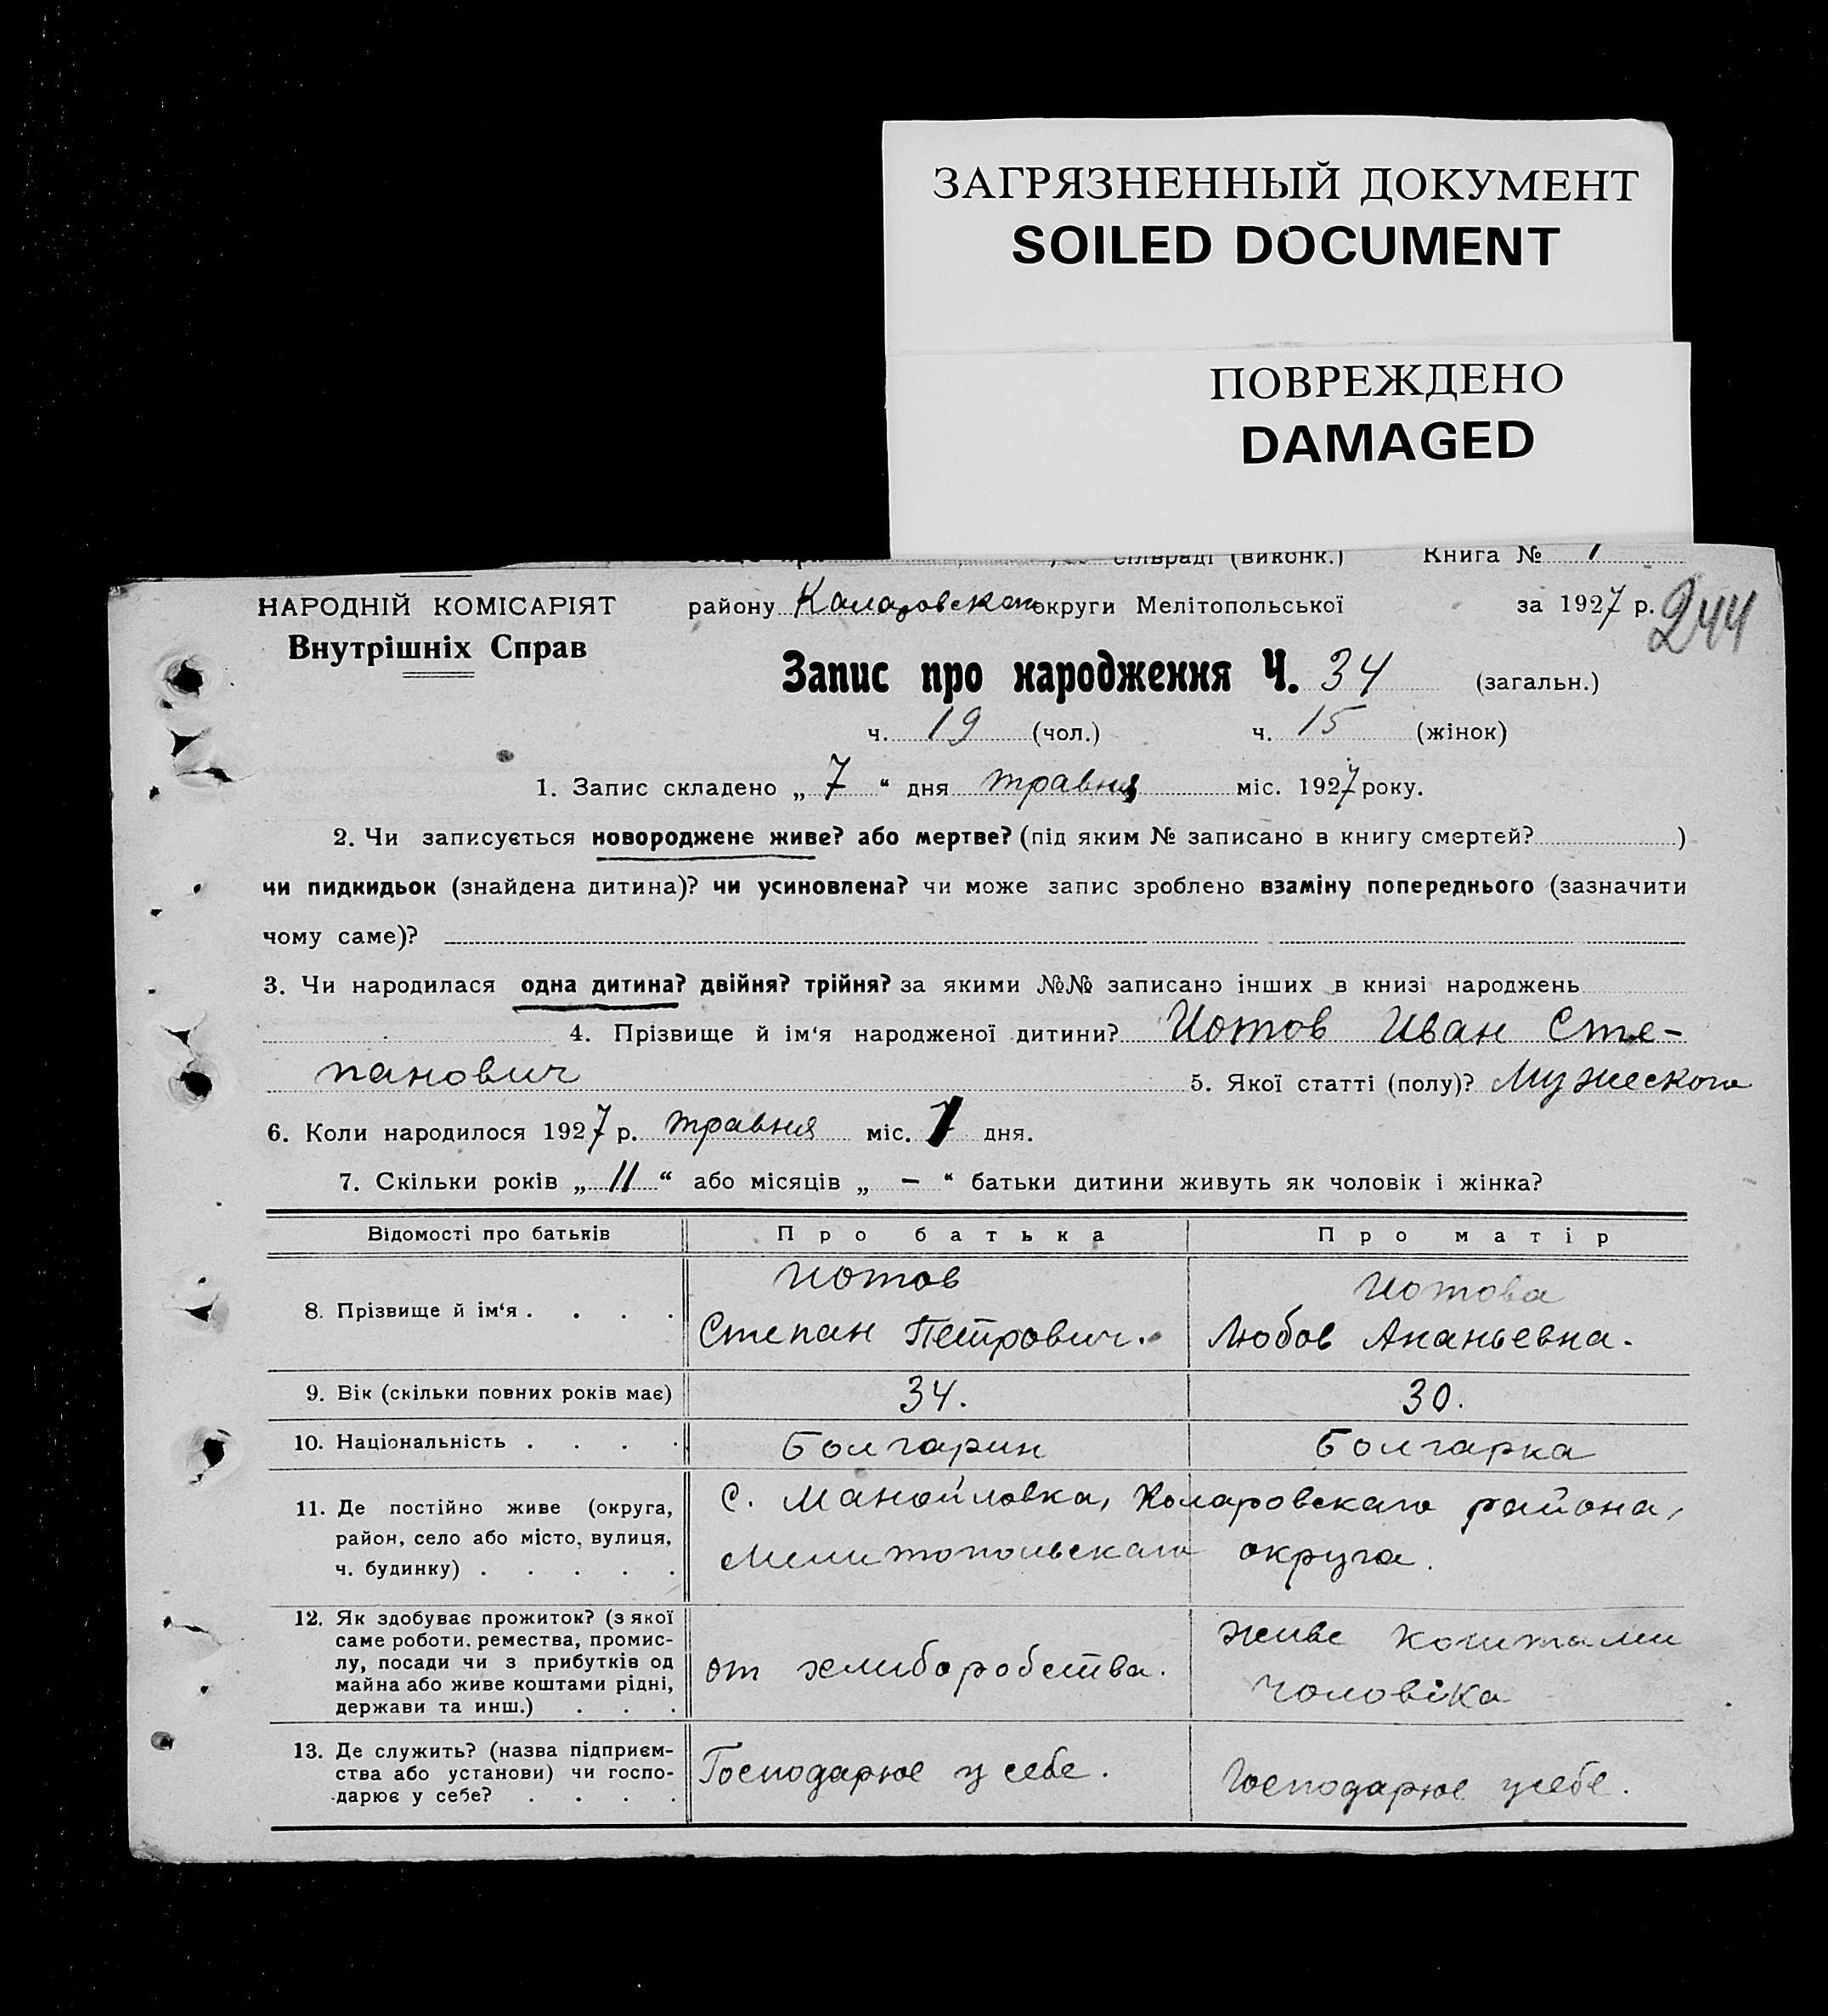 ЗАГРЯЗНЕННЫЙ ДОКУМЕНТ
SOILED DOCUMENT
ПОВРЕЖДЕНО
DAMAGED
сільраді (виконк.) Книга № 1
НАРОДНІЙ КОМІСАРІЯТ
Внутрішніх Справ
району Каларовской округи Мелітопольської за 1927 р. 244
Запис про народження Ч. 34 (загальн.)
ч. 19 (чол.) ч. 15 (жінок)
1. Запис складено „ 7 “ дня травня міс. 1927 року.
2. Чи записується новороджене живе? або мертве? (під яким № записано в книгу смертей? )
чи пидкидьок (знайдена дитина)? чи усиновлена? чи може запис зроблено взаміну попереднього (зазначити
чому саме)?
3. Чи народилася одна дитина? двійня? трійня? за якими №№ записано інших в книзі народжень
4. Прізвище й ім‘я народженої дитини? Иотов Иван Сте-
панович 5. Якої статті (полу)? Мужеского
6. Коли народилося 1927 р. травня міс. 7 дня.
7. Скільки років „ 11 “ або місяців „ – “ батьки дитини живуть як чоловік і жінка?
Відомості про батьків Про батька Про матір
8. Прізвище й ім‘я . . . . Иотов Степан Петрович. Иотова Любов Ананьевна.
9. Вік (скільки повних років має) 34. 30.
10. Національність . . . . Болгарин Болгарка
11. Де постійно живе (округа, С. Манойловка, Коларовскаго района,
район, село або місто, вулиця, Мелитопольскаго округа.
ч. будинку) . . . . .
12. Як здобуває прожиток? (з якої
саме роботи, ремества, промис- живе коштами
лу, посади чи з прибутків од от хлиборобства.
майна або живе коштами рідні, чоловіка
держави та инш.) . . .
13. Де служить? (назва підприєм-
ства або установи) чи госпо- Господарює у себе. Господарює у себе.
дарює у себе? . . . .